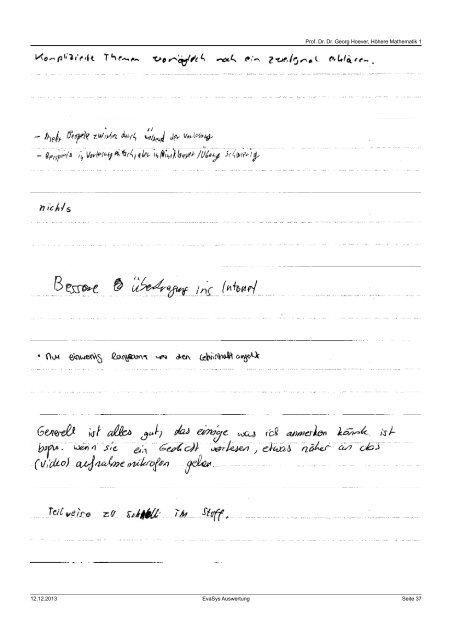 Prof. Dr. Dr. Georg Hoever, Höhere Mathematik 1
Komplizierte Themen womöglich noch ein zweitmal erklären.
- Mehr Beispiele zwischen durch während der Vorlesung
- Beispiele in Vorlesung einfach, aber in Minitests / Übung schwierig
nichts
Bessere Übertragung ins Internet
• Nur einwenig langsam was den Lehrinhalt angeht
Generell ist alles gut, das einzige was ich anmerken könnte ist
bspw. wenn sie ein Gedicht vorlesen, etwas näher an das
(Video) aufnahmemikrofon gehen.
Teilweise zu schnell im Stoff.
12.12.2013 EvaSys Auswertung Seite 37